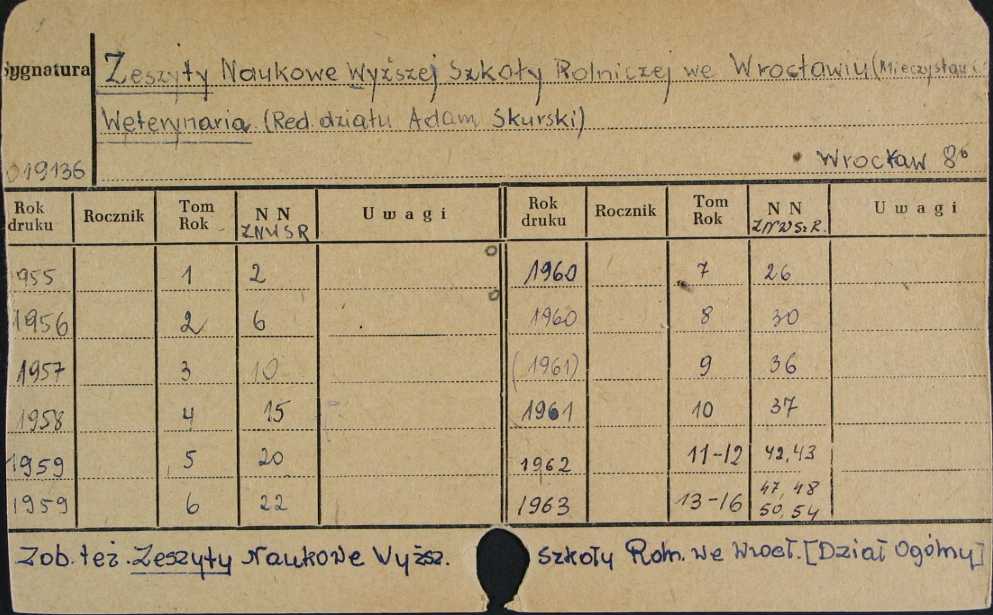 Sygnatura
Zeszyty Naukowe Wyższej Szkoły Rolniczej we Wrocławiu (Mieczysław C.
Weterynaria (Red. działu Adam Skurski)
019136
Wrocław 8°
Rok druku Rocznik Tom Rok N N ZNWSR Uwagi Rok druku Rocznik Tom Rok N N ZNWSz.R. Uwagi
1955 1 2 1960 7 26
1956 2 6 1960 8 30
1957 3 10 (1961) 9 36
1958 4 15 1961 10 37
1959 5 20 1962 11-12 42,43
1959 6 22 1963 13-16 47, 48 50, 54
Zob. też. Zeszyty Naukowe Wyższ. Szkoły Roln. we Wrocł. [Dział Ogólny]